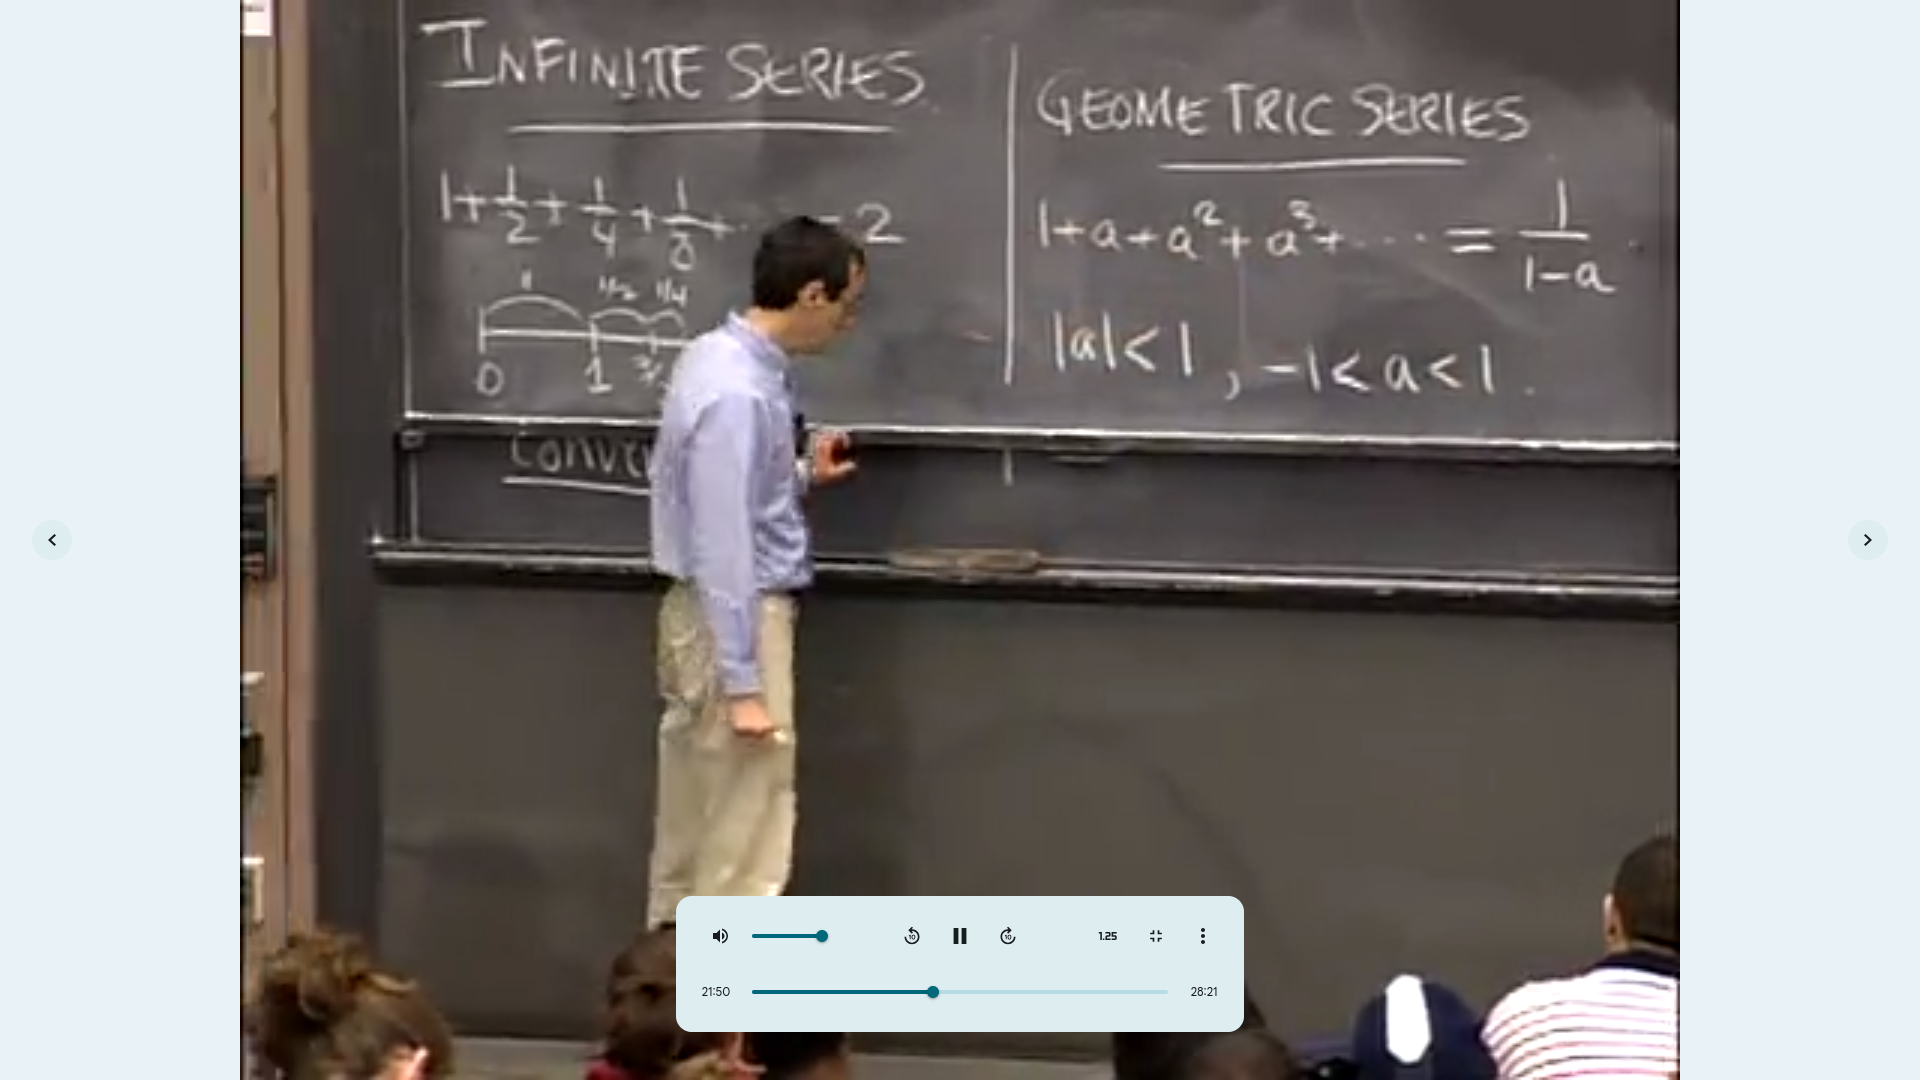 INFINITE SERIES
1 + 1/2 + 1/4 + 1/8 + ... = 2
1 1/2 1/4
0 1
GEOMETRIC SERIES
1 + a + a² + a³ + ... = 1/(1-a)
|a| < 1, -1 < a < 1.
1.25
21:50 28:21